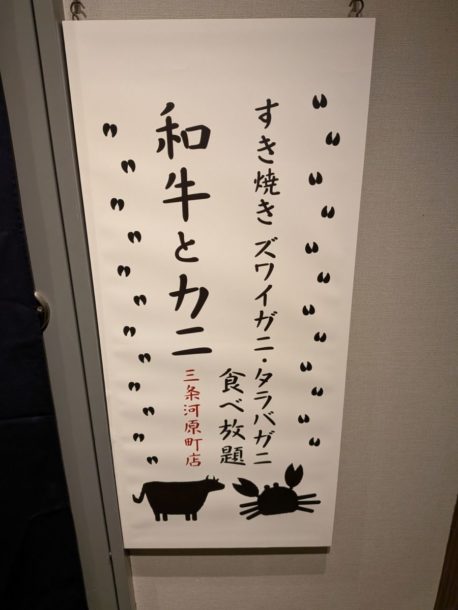 すき焼き ズワイガニ・タラバガニ
食べ放題
和牛とカニ
三条河原町店